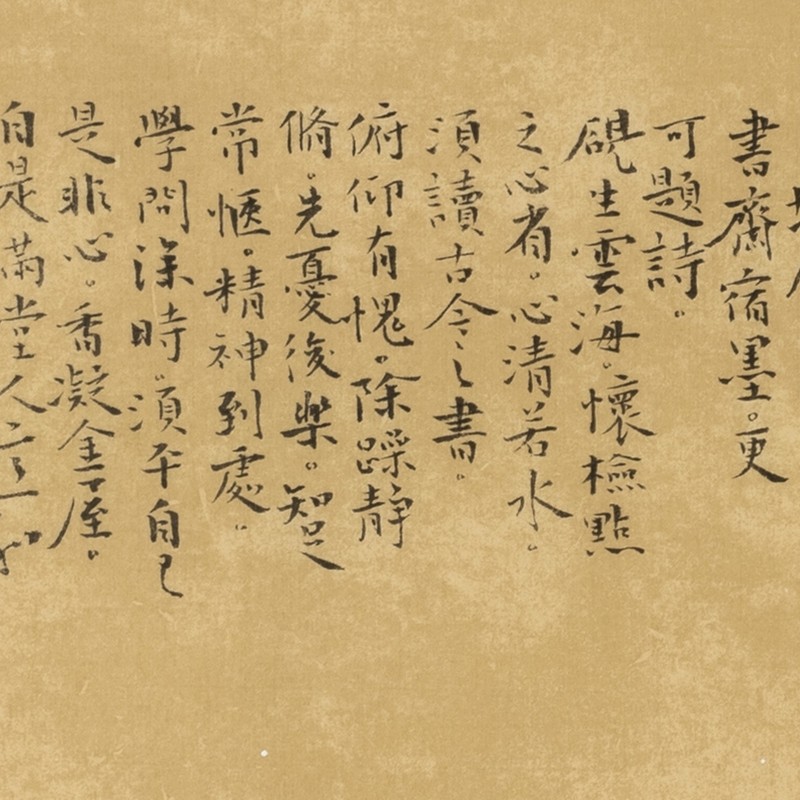 書齋宿墨。更
可題詩。
硯生雲海。懷檢點
之心者。心清若水。
須讀古今之書。
俯仰有愧。除躁靜
脩。先憂後樂。智足
常愜。精神到處。
學問深時。須平自己
是非心。香凝金屋。
自是滿堂人